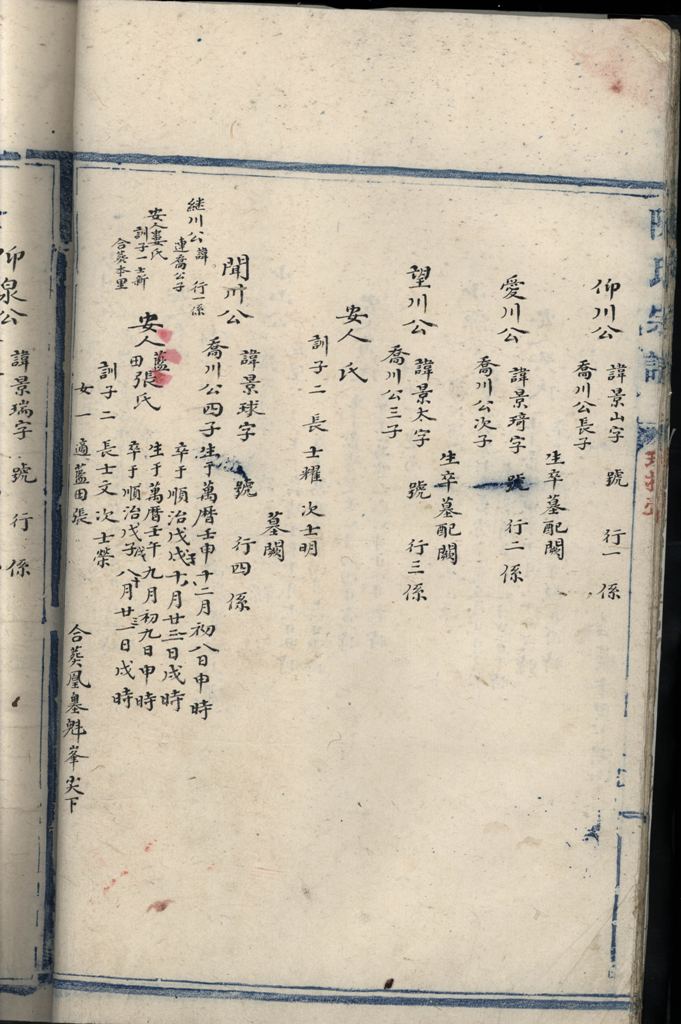 仰川公
諱景山字 號 行一 係
喬川公長子
生卒墓配闕
愛川公
諱景琦字 號 行二 係
喬川公次子
生卒墓配闕
望川公
諱景太字 號 行三 係
喬川公三子
安人 氏
訓子二 長士耀 次士明
墓闕
聞川公
諱景球字 號 行四 係
喬川公四子
生于萬曆壬申十二月初八日申時
卒于順治戊戌十月廿三日戌時
安人藍田張氏
生于萬曆壬午九月初九日申時
卒于順治戊子八月廿一日戌時
訓子二 長士文 次士榮
女一 適藍田張
合葬凰墓魁峯尖下
継川公諱 行一係
連喬公子
安人婁氏
訓子一士新
合葬本里
仰泉公
諱景瑞字 號 行 係